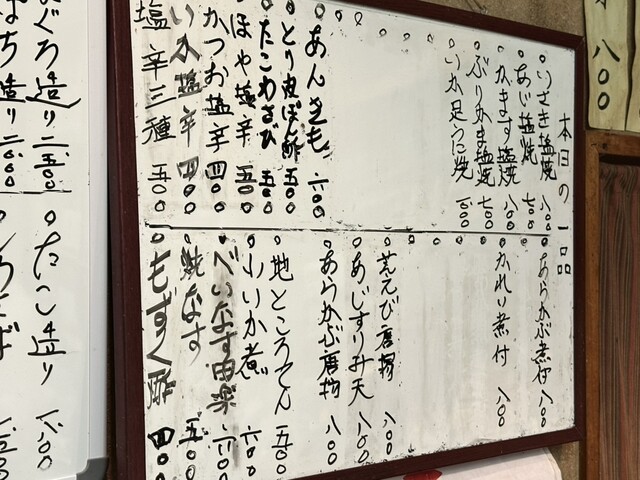 本日の一品
いさき塩焼 八〇〇
あじ塩焼 七〇〇
かます塩焼 八〇〇
ぶりかま塩焼 七〇〇
いか足うに焼 六〇〇
あんきも 六〇〇
とり皮ぽん酢 五〇〇
たこわさび 五〇〇
ほや塩辛 五〇〇
かつお塩辛 四〇〇
いか塩辛 四〇〇
塩辛三種 五〇〇
あらかぶ煮付 八〇〇
かれい煮付 八〇〇
芝えび唐揚 八〇〇
あじすり身天 八〇〇
あらかぶ唐揚 八〇〇
地ところてん 五〇〇
小いか煮 六〇〇
べいなす田楽 六〇〇
焼なす 五〇〇
もずく酢 四〇〇
八〇〇
まぐろ造り 一、五〇〇
はち造り 一、〇〇〇
たこ造り 八〇〇